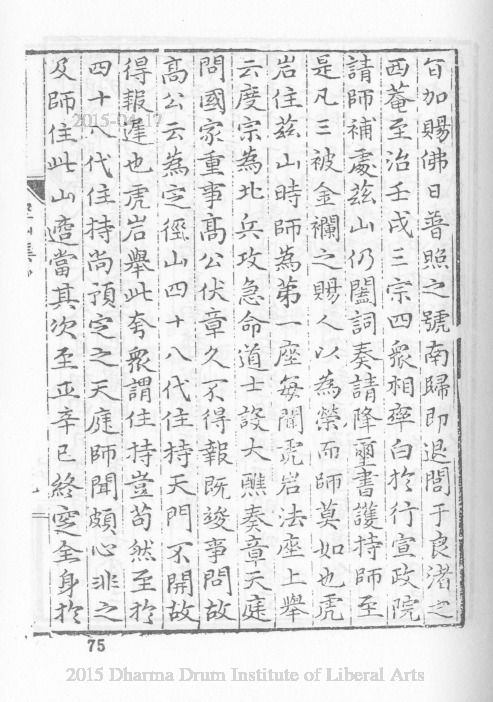 旨加賜佛日普照之號南歸即退閒于良渚之
西菴至治壬戌三宗四眾相率白於行宣政院
請師補處茲山仍闔詞奏請降璽書護持師至
是凡三被金襴之賜人以為榮而師莫如也虎
岩住茲山時師為第一座每聞虎岩法座上舉
云度宗為北兵攻急命道士設大醮奏章天庭
問國家重事高公伏章久不得報既竣事問故
高公云為定徑山四十八代住持天門不開故
得報遲也虎岩舉此夸眾謂住持豈苟然至於
四十八代住持尚預定之天庭師聞頗心非之
及師住此山適當其次至正辛巳終窆全身於
75
2015-04-17
2015 Dharma Drum Institute of Liberal Arts